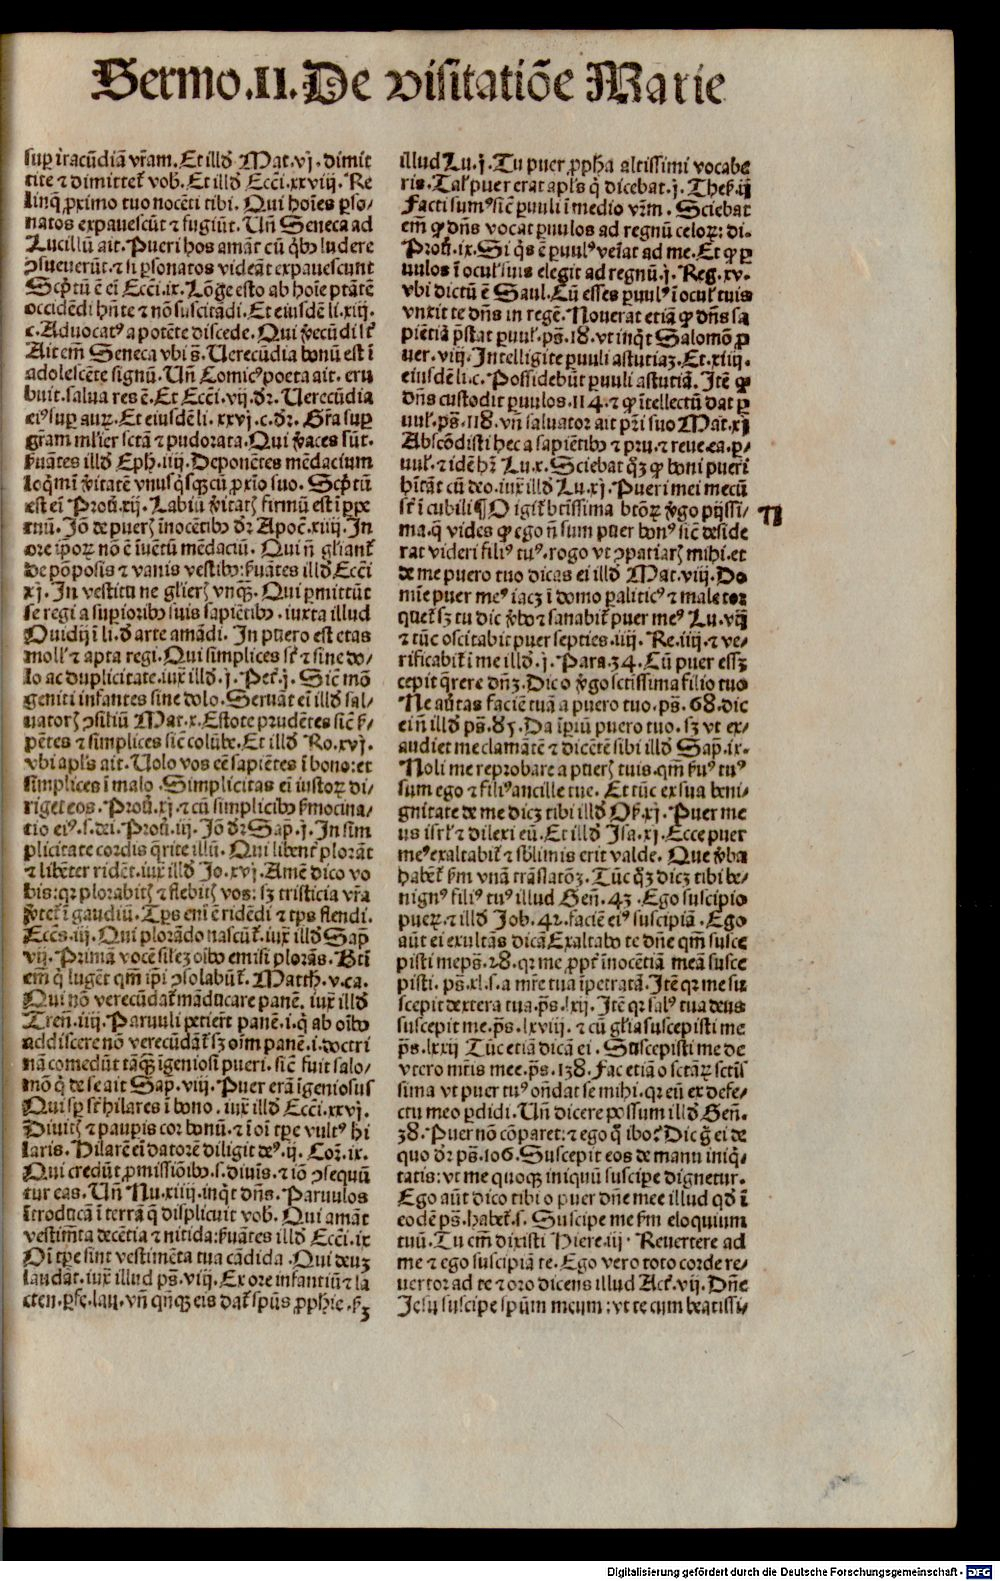 Sermo.II.De visitatiōe Marie
sup iracūdiā vr̄am. Et illd̄ Mat. vj. dimit
tite ⁊ dimittet̄ vob̄. Et illd̄ Ecci. xxviij. Re
linq̄ proximo tuo nocēti tibi. Qui hoīes ꝑso-
natos expauescūt ⁊ fugiūt. Un̄ Seneca ad
Lucillū ait. Pueri hos amāt cū qͥbꝰ ludere
ꝯsueuerūt. ⁊ si ꝑsonatos videāt expauescunt
Scp̄tū ē eī Ecci. ix. Lōge esto ab hoīe ptātē
occidēdi hn̄te ⁊ nō suscitādi. Et eiusdē li. xiij.
c. Aduocatꝰ a potēte discede. Qui v̄ecūdi st̄
Ait em̄ Seneca vbi s̄. Uerecūdia bonū est ī
adolescēte signū. Un̄ Comicꝰ poeta ait. eru
buit. salua res ē. Et Ecci. vij. dr̄. Uerecūdia
eiꝰ sup auꝝ. Et eiusdē li. xxvj. c. dr̄. Gr̄a sup
gram mľier sctā ⁊ pudorata. Qui v̄aces sūt.
ẜuātes illd̄ Eph. iiij. Deponētes mēdacium
loqͥmī v̄itatē vnusqͥsqꝫ cū ꝓxīo suo. Scp̄tū
est eī Prou̇. xij. Labiū v̄itatꝭ firmū est ī ꝑpe
tuū. Iō de puerꝭ īnocētibꝰ dr̄ Apoc̄. xiiij. In
ore ip̄oꝝ nō ē īuētū mēdaciū. Qui n̄ gl̄iant̄
de pōposis ⁊ vanis vestibꝰ: ẜuātes illd̄ Ecci
xj. In vestitu ne gl̄ierꝭ vnqꝫ. Qui ꝑmittūt
se regi a supioribꝰ suis sapiētibꝰ. iuxta illud
Ouidij ī li. d̄ arte amādi. In puero est etas
moll̄ ⁊ apta regi. Qui simplices st̄ ⁊ sine do-
lo ac duplicitate. iux̄ illd̄. j. Pet̄. ij. Sic̄ mō
geniti infantes sine dolo. Seruāt eī illd̄ sal-
uatorꝭ ꝯsiliū Mat. x. Estote prudētes sic̄ ẜ-
pētes ⁊ simplices sic̄ colūbe. Et illd̄ Ro. xvj.
vbi apľs ait. Uolo vos eē sapiētes ī bono: et
simplices ī malo. Simplicitas eī iustoꝝ di-
riget eos. Prou̇. xj. ⁊ cū simplicibꝰ ẜmocina-
tio eiꝰ. s. dei. Prou̇. iij. Iō dr̄ Sap. j. In sim
plicitate cordis q̄rite illū. Qui libent̄ plorāt
⁊ libēter ridēt. iux̄ illd̄ Io. xvj. Amē dico vo
bis: qꝛ plorabitꝭ ⁊ flebitꝭ vos: sꝫ tristicia vr̄a
v̄tet̄ ī gaudiū. Tp̄s enī ē ridēdi ⁊ tp̄s flendi.
Ecc̄s. iij. Qui plorādo nascūt̄. iux̄ illd̄ Sap̄
vij. Primā vocē sil̄eꝫ oībꝰ emisi plorās. Btī
em̄ qͥ lugēt qm̄ ip̄i ꝯsolabūt̄. Matth. v. ca.
Qui nō verecūdāt̄ māducare panē. iux̄ illd̄
Tren̄. iiij. Paruuli petier̄t panē. i. qͥ ab oībꝰ
addiscere nō verecūdāt̄ sꝫ oīm panē. i. doctri
nā comedūt tāqꝫ īgeniosi pueri. sic̄ fuit salo-
mō qͥ de se ait Sap. viij. Puer erā īgeniosus
Qui sp̄ st̄ hilares ī bono. iux̄ illd̄ Ecci. xxvj.
Diuitꝭ ⁊ pauꝑis cor bonū. ⁊ ī oī tp̄e vultꝰ hi
laris. Hilarē eī datorē diligit deꝰ. ij. Coꝛ̄. ix.
Qui credūt ꝓmissiōibꝰ. s. diuīs. ⁊ iō ꝯsequū
tur eas. Un̄ Nu. xiiij. inqͥt dn̄s. Paruulos
ītroducā ī terrā q̄ displicuit vob̄. Qui amāt
vestimēta decētia ⁊ nitida: ẜuātes illd̄ Ecci. ix
Oī tp̄e sint vestimēta tua cādida. Qui deuꝫ
laudāt. iux̄ illud ps̄. viij. Ex ore infantiū ⁊ la
cten. ꝑfe. lau. vn̄ qn̄qꝫ eis dat̄ sp̄ūs ꝓphie. ẜꝫ
illud Lu. j. Tu puer ꝓpha altissimi vocabe
ris. Tal̄ puer erat apľs qͥ dicebat. j. Thes̄. ij
Facti sumꝰ sic̄ ꝑuuli ī medio vr̄m. Sciebat
em̄ ꝙ dn̄s vocat ꝑuulos ad regnū celoꝝ: di.
Prou̇. ix. Si qͥs ē ꝑuulꝰ veīat ad me. Et ꝙ ꝑ
uulos ī ocul̄ suis elegit ad regnū. j. Reg. xv.
vbi dictū ē Saul. Cū esses ꝑuulꝰ ī ocul̄ tuis
vnxit te dn̄s in regē. Nouerat etiā ꝙ dn̄s sa
piētiā p̄stat ꝑuul̄. ps̄. 18. vt inqͥt Salomō ꝓ
uer. viij. Intelligite ꝑuuli astutiaꝫ. Et. xiiij.
eiusdē li. c. Possidebūt ꝑuuli astutiā. Itē ꝙ
dn̄s custodit ꝑuulos. 114. ⁊ ꝙ ītellectū dat ꝑ
uul̄. ps̄. 118. vn̄ saluator ait pr̄i suo Mat. xj
Abscōdisti hec a sapiētibꝰ ⁊ pru. ⁊ reue. ea. ꝑ-
uul̄. ⁊ idē hꝫ Lu. x. Sciebat qͦꝫ ꝙ boni pueri
hītāt cū deo. iux̄ illd̄ Lu. xj. Pueri mei mecū
st̄ ī cubili ¶ O igit̄ btīssima btōꝝ v̄go pijssi-
ma. q̄ vides ꝙ ego n̄ sum puer bonꝰ sic̄ deside
rat videri filiꝰ tuꝰ. rogo vt ꝯpatiarꝭ mihi. et
de me puero tuo dicas ei illd̄ Mat. viij. Do
mīe puer meꝰ iacꝫ ī domo ꝑaliticꝰ ⁊ male tor
quet̄ sꝫ tu dic v̄bo ⁊ sanabit̄ puer meꝰ Lu. vij
⁊ tūc oscitabit puer septies. iiij. Re. iiij. ⁊ ve-
rificabit̄ ī me illd̄. j. Para. 34. Cū puer essꝫ
cepit q̄rere dn̄ꝫ. Dic o v̄go sctissima filio tuo
Ne au̇tas faciē tuā a puero tuo. ps̄. 68. dic
ei n̄ illd̄ ps̄. 85. Da īꝑiū puero tuo. sꝫ vt ex-
audiet me clamātē ⁊ dicētē sibi illd̄ Sap̄. ix.
Noli me reprobare a puerꝭ tuis. qm̄ ẜuꝰ tuꝰ
sum ego ⁊ filiꝰ ancille tue. Et tūc ex sua beni-
gnitate de me dicꝫ tibi illd̄ Os̄. xj. Puer me
us isrl̄ ⁊ dilexi eū. Et illd̄ Isa. xj. Ecce puer
meꝰ exaltabit̄ ⁊ sblimis erit valde. Que v̄ba
habēt̄ ẜm vnā trāslatōꝫ. Tūc qͦꝫ dicꝫ tibi be-
nignꝰ filiꝰ tuꝰ illud Gen̄. 43. Ego suscipio
pueꝝ. ⁊ illd̄ Job. 42. faciē eiꝰ suscipiā. Ego
aūt ei exultās dicā Exaltabo te dn̄e qm̄ susce
pisti me ps̄. 28. qꝛ me ꝓpt̄ īnocētiā meā susce
pisti. ps̄. xl. s. a mr̄e tua īpetratā. Itē qꝛ me su
scepit dextera tua. ps̄. lxij. Itē qꝛ salꝰ tua deus
suscepit me. ps̄. lxviij. ⁊ cū gl̄ia suscepisti me
ps̄. lxxij Tūc etiā dicā ei. Suscepisti me de
vtero mr̄is mee. ps̄. 138. Fac etiā o sctāꝝ sctis̄
sima vt puer tuꝰ on̄dat se mihi. qꝛ eū ex defe-
ctu meo ꝑdidi. Un̄ dicere possum illd̄ Gen̄.
38. Puer nō cōparet: ⁊ ego qͦ ibo? Dic g̊ ei de
quo dr̄ ps̄. 106. Suscepit eos de manu iniqͥ-
tatis: vt me quoqꝫ iniquū suscipe dignetur.
Ego aūt dico tibi o puer dn̄e mee illud qd̄ ī
eodē ps̄. habet̄. s. Suscipe me ẜm eloquium
tuū. Tu em̄ dixisti Hiere. iij. Reuertere ad
me ⁊ ego suscipiā te. Ego vero toto corde re-
uertor ad te ⁊ oro dicens illud Act̄. vij. Dn̄e
Jesu suscipe sp̄um meum: vt te cum beatissi-
N
Digitalisierung gefördert durch die Deutsche Forschungsgemeinschaft - DFG